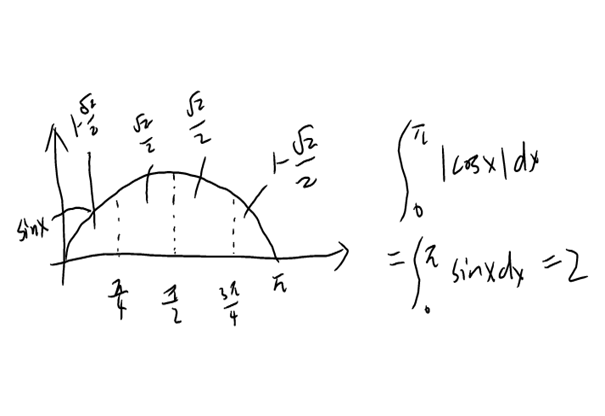 1-√2/2
√2/2
√2/2
1-√2/2
sinx
π/4
π/2
3π/4
π
∫₀^π |cosx|dx
=∫₀^π sinxdx=2